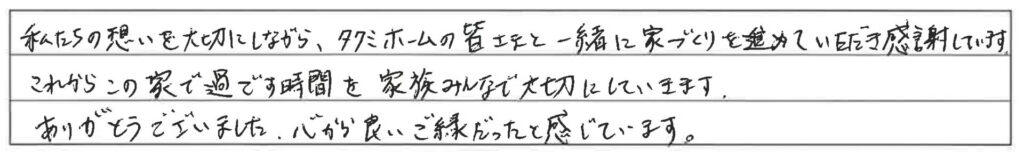 私たちの想いを大切にしながら、タクミホームの皆さまと一緒に家づくりを進めていただき感謝しています。
これからこの家で過ごす時間を家族みんなで大切にしていきます.
ありがとうございました.心から良いご縁だったと感じています。